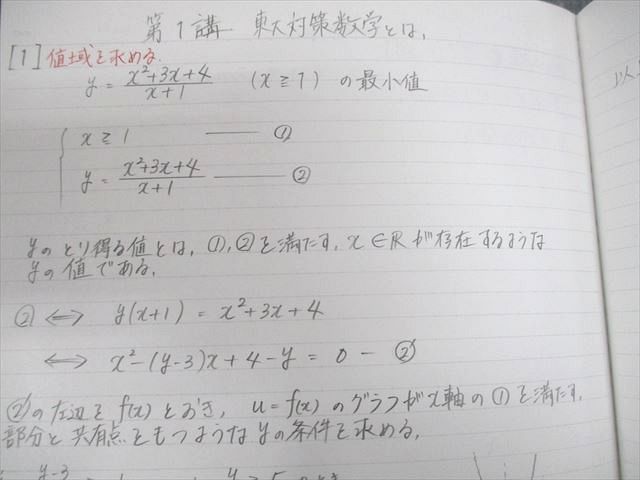 第1講 東大対策数学とは,
[1] 値域を求める.
y = (x²+3x+4)/(x+1) (x≧1) の最小値
x≧1 ―― ①
y = (x²+3x+4)/(x+1) ―― ②
yのとり得る値とは, ①, ②を満たす, x∈ℝが存在するような
yの値である,
② ⟺ y(x+1) = x²+3x+4
⟺ x²-(y-3)x+4-y = 0 - ②'
②'の左辺をf(x)とおき, u=f(x)のグラフがx軸の①を満たす,
部分と共有点をもつようなyの条件を求める,
y-3
以